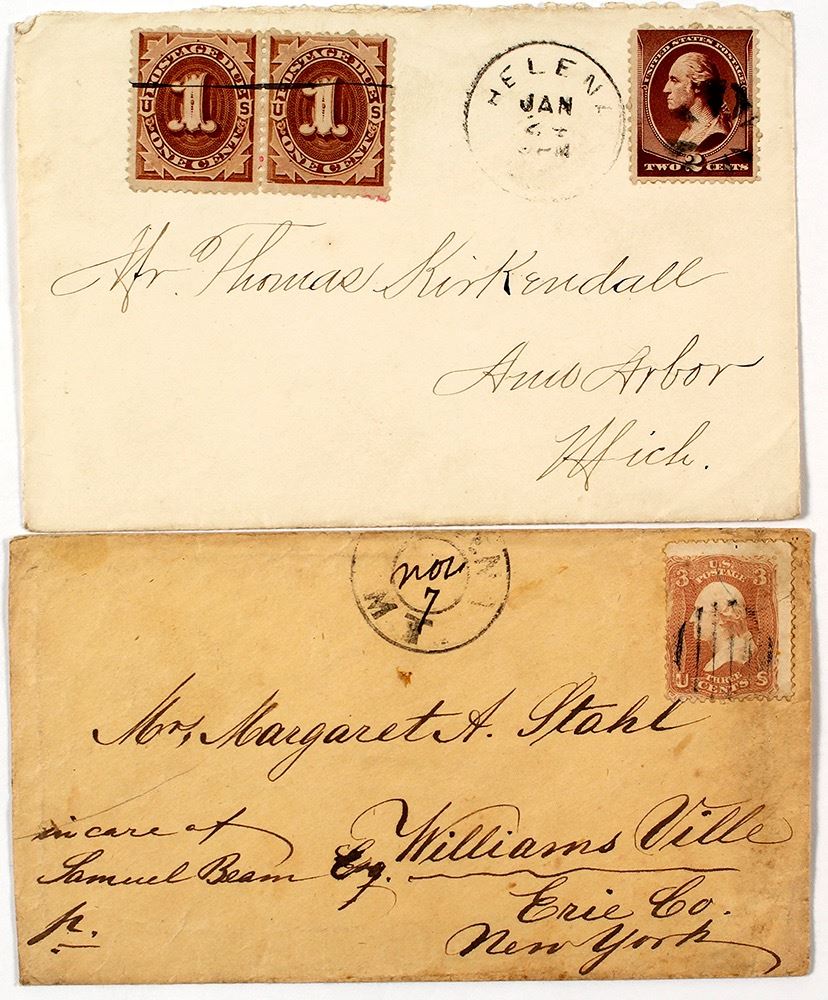 POSTAGE DUE
1
U S
ONE CENT
POSTAGE DUE
1
U S
ONE CENT
HELENA
JAN
UNITED STATES POSTAGE
TWO 2 CENTS
Mr. Thomas Kirkendall
Ann Arbor
Mich.
Nov
7
3 U.S. 3
POSTAGE
U THREE S
CENTS
Mrs, Margaret A. Stahl
in care of
Samuel Beam Esq. Williams Ville
p.
Erie Co.
New York